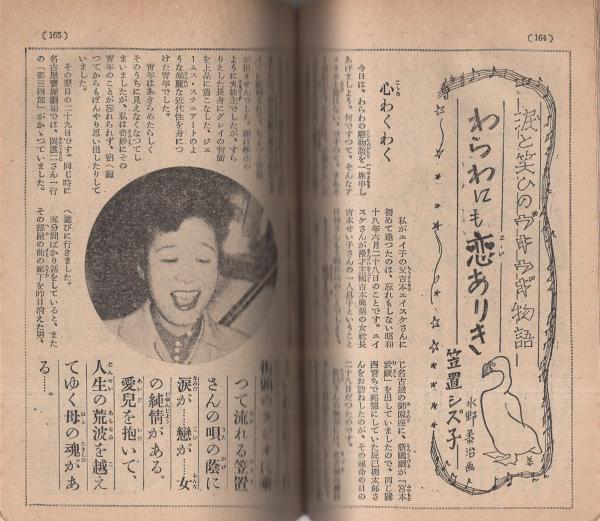 (164)
涙と笑ひのブギウギ物語
わらわにも恋ありき
笠置シズ子
水野泰治画
心わくわく
今日は、わらわの戀物語を一席申し
あげましょう。何ですつて、そんなア
私がエイ子の父吉本エイスケさんに
初めて逢つたのは、忘れもしない昭和
十八年六月二十八日のことです。エイ
スケさんが漫才王國吉本興業の女社長
吉本せい子さんの一人息子ということ
じ名古屋の御園座に、新國劇が『宮本
武蔵』を出していましたので、同じ關
西育ちで懇意にしていた辰巳柳太郎さ
んをお訪ねしたのが、その運命の日の
二十八日だつたのです。
(165)
が出ませんでした。
ように丸坊主でしたが、すら
りとした長身にグレイの背廣
を上品に着こなした、ジェ
ームス・ステュアートのよ
うな端麗な近代性を身につ
けた青年でした。
青年はあきらめたらしく
そのうちに見えなくなつてし
まいましたが、私は奇妙にその
青年のことが忘れられず、宿へ歸
つてからもぼんやり思い出したりして
いました。
その翌日の二十九日です。同じ時に
名古屋寶塚劇場では、岡譲二さん一行
の『姿三四郎』がかゝつていました。
へ遊びに行きました。
五分間ばかり話をしていると、また
その部屋の前の廊下を昨日消えた男、
つて流れる笠置
さんの唄の蔭に
涙が…戀が…女
の純情がある。
愛兒を抱いて、
人生の荒波を越え
てゆく母の魂があ
る……。